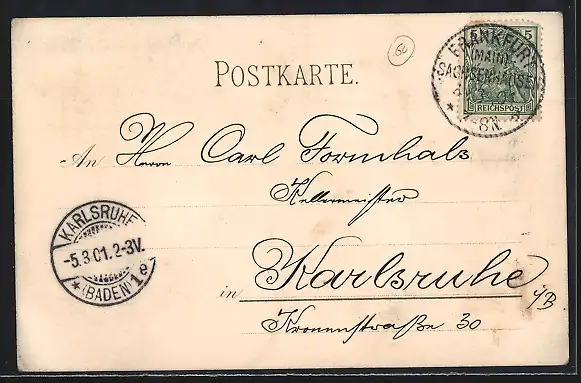 60
5 5
FRANKFURT
(MAIN)
SACHSENHAUSEN
REICHSPOST
7-8N.
POSTKARTE.
An Herrn Carl Formhals
Kellermeister
KARLSRUHE
-5.3.01.2-3V.
(BADEN) 1e
in Karlsruhe
i/B
Kronenstraße 30